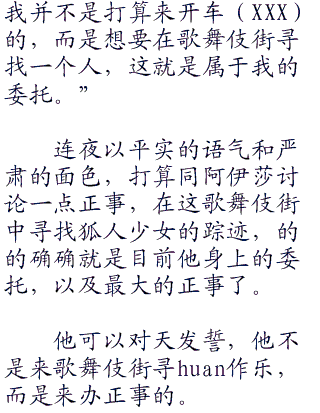 我并不是打算来开车（XXX）
的，而是想要在歌舞伎街寻
找一个人，这就是属于我的
委托。”
连夜以平实的语气和严
肃的面色，打算同阿伊莎讨
论一点正事，在这歌舞伎街
中寻找狐人少女的踪迹，的
的确确就是目前他身上的委
托，以及最大的正事了。
他可以对天发誓，他不
是来歌舞伎街寻huan作乐，
而是来办正事的。